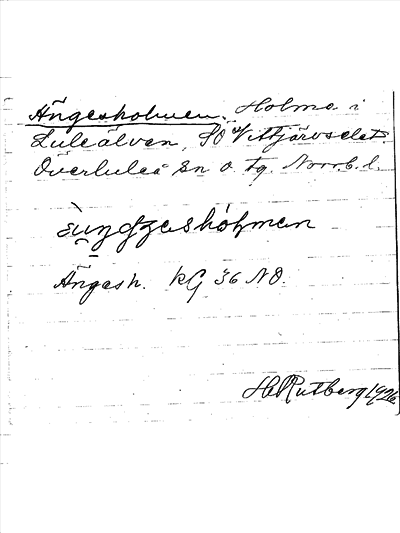 Ängesholmen. Holme i
Luleälven, SO om Vittjärvselet.
Överluleå sn o. tg. Norrb. l.
Ängesh. KG 36 NO.
H. Rutberg 1926